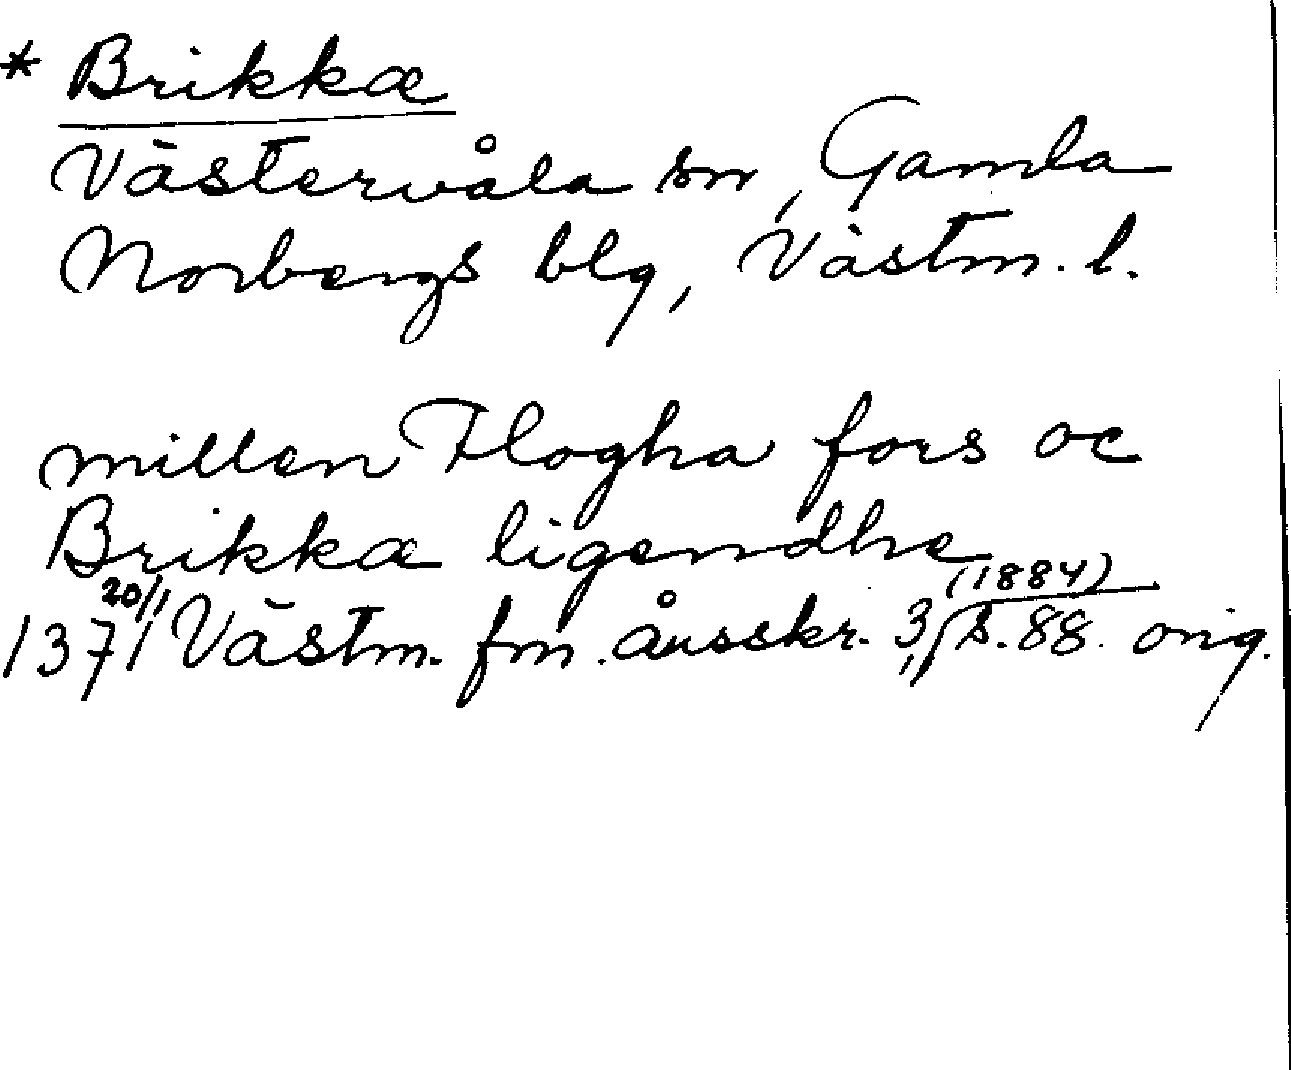 * Brikkæ
Västervåla sn, Gamla
Norbergs blg, Västm. l.
millen Flogha fors oc
Brikkæ ligendhe
1371 20/1 Västm. fm. årsskr. 3, (1884) s. 88. orig.